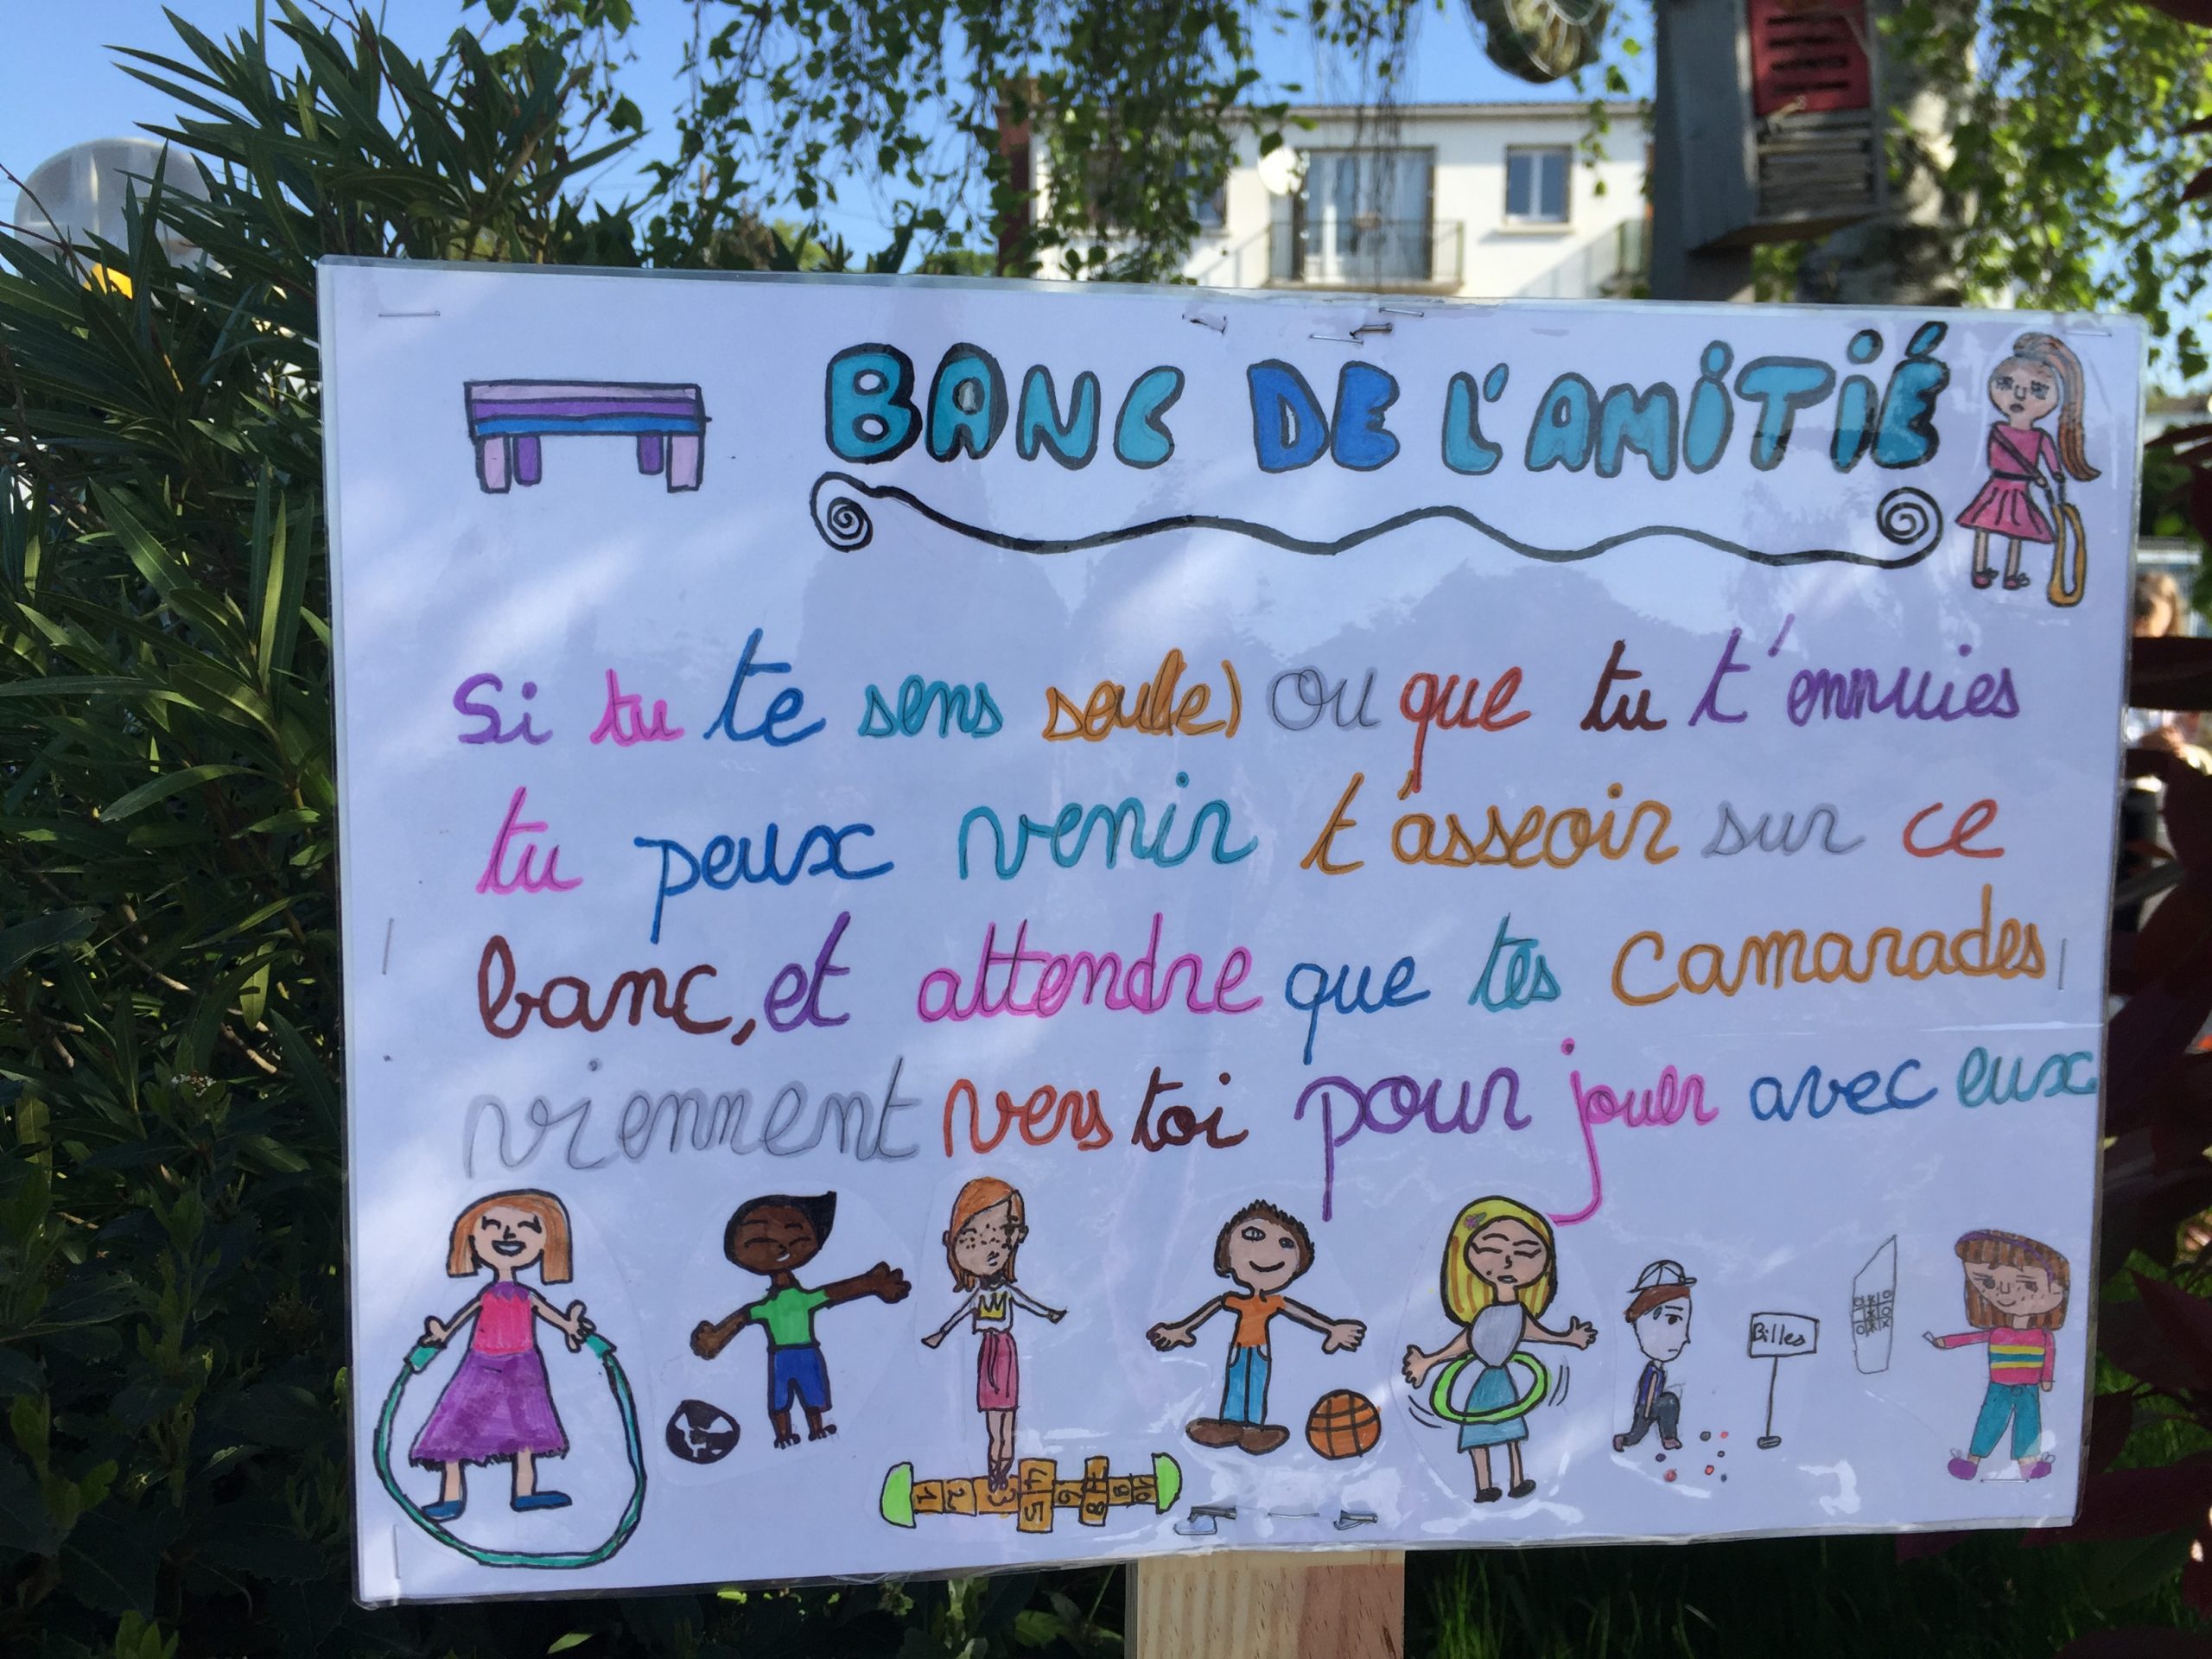 BANC DE L'AMITIÉ
Si tu te sens seul(e) ou que tu t'ennuies
tu peux venir t'asseoir sur ce
banc, et attendre que tes camarades
viennent vers toi pour jouer avec eux
Billes
1 2 3 4 5 6 7 8 9 10